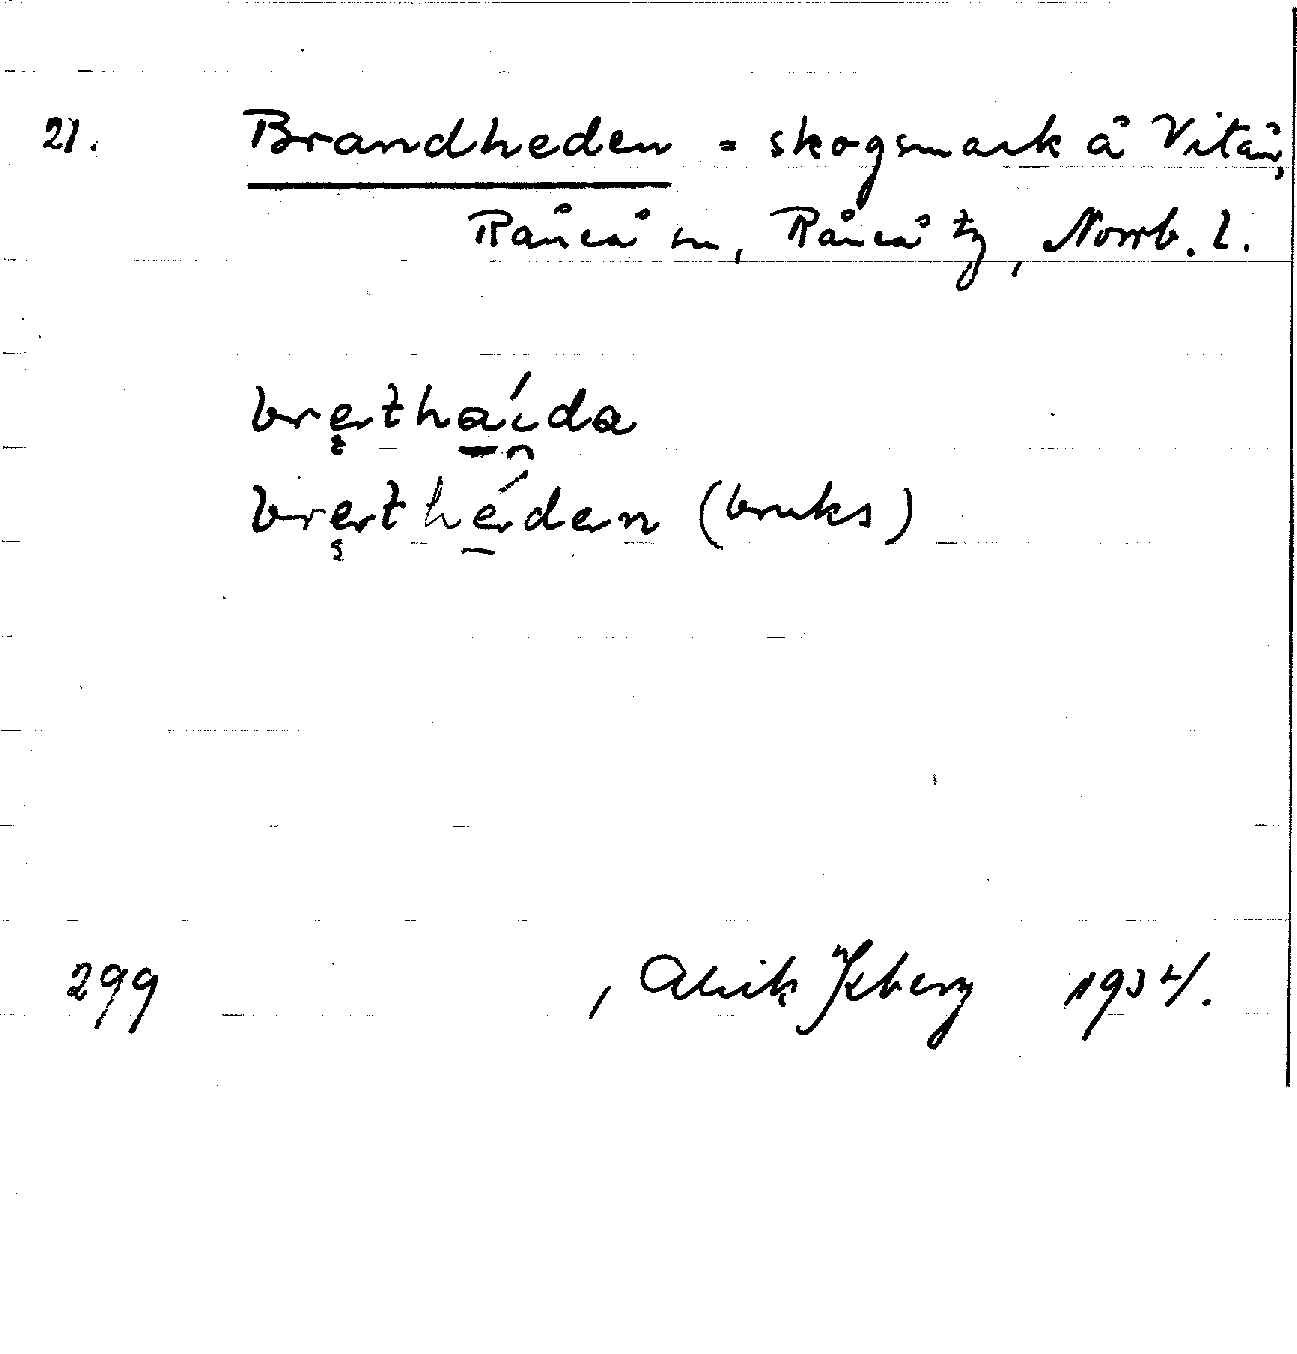 21. Brandheden = skogsmark å Vitån,
Råneå sn, Råneå tg, Norrb. l.
bretha̲í̯da
brethé̲den (bruks)
299 , Alrik Isberg 1934.